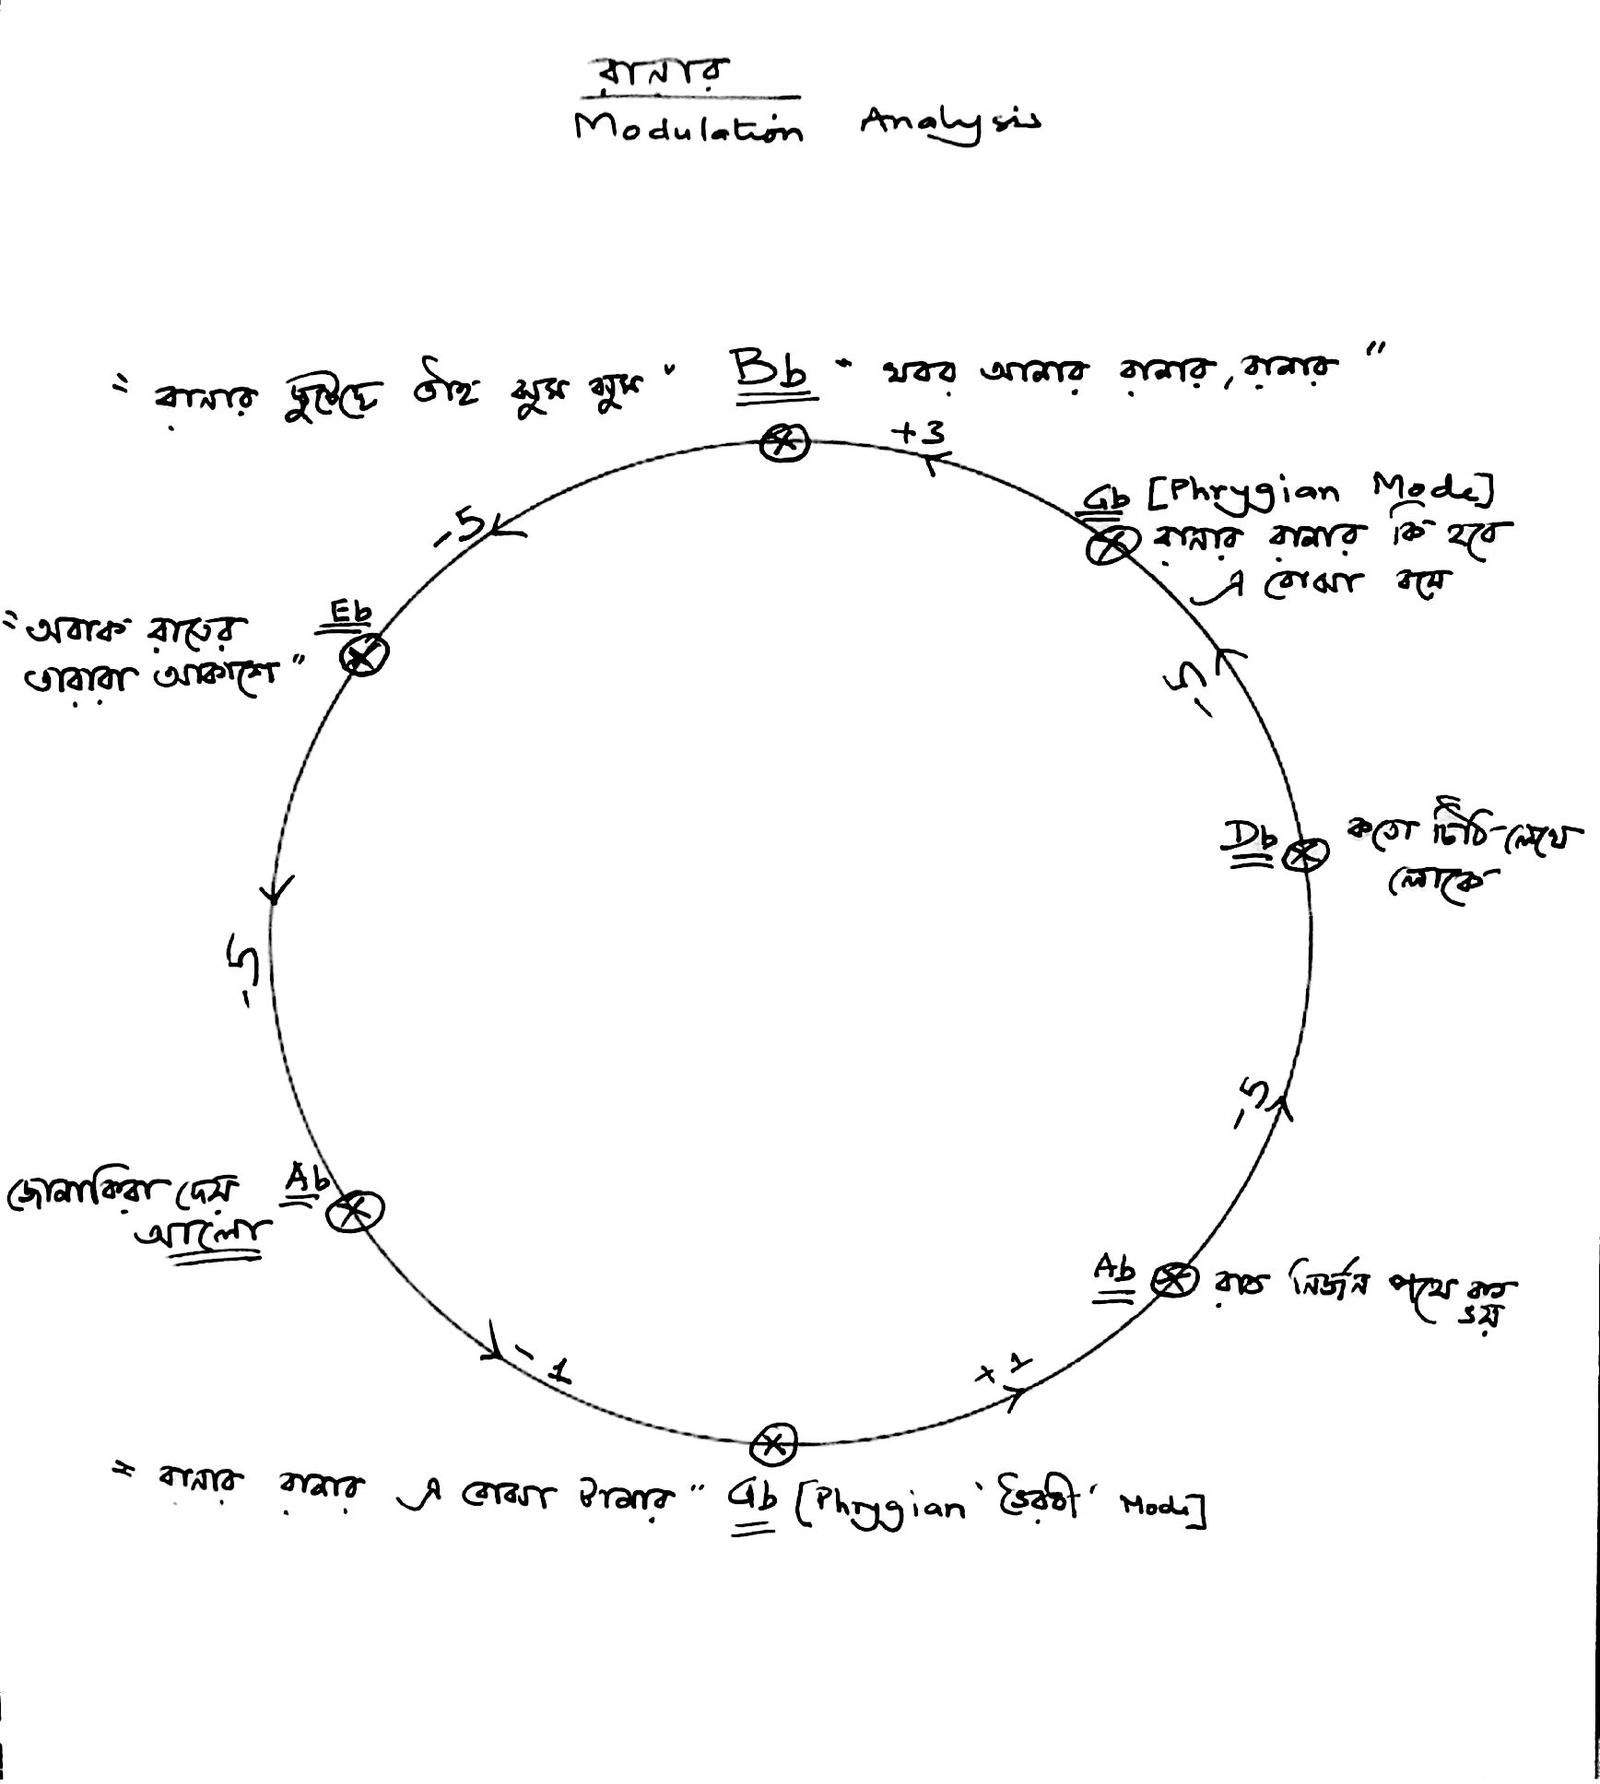 রানার
Modulation Analysis
"রানার ছুটেছে তাই ঝুম ঝুম" Bb "খবর আনার রানার, রানার"
+3
-5
Gb [Phrygian Mode]
রানার রানার কি হবে
এ বোঝা বয়ে
Eb
"অবাক রাতের
তারারা আকাশে"
-5
Db কতো চিঠি লেখে
লোকে
-5
-5
জোনাকিরা দেয় Ab
আলো
Ab রাত নির্জন পথে কত
ভয়
-1
+1
"রানার রানার এ বোঝা টানার" Gb [Phrygian 'ভৈরবী' Mode]